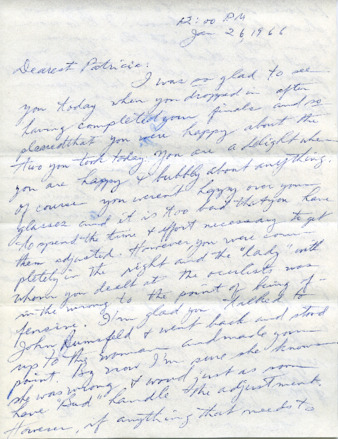 12:00 PM
Jan 26, 1966
Dearest Patricia:
I was so glad to see
you today when you dropped in after
having completed your finals and so
pleased that you were happy about the
two you took today. You are a delight when
you are happy & bubbly about anything.
Of course you weren't happy over your
glasses and it is too bad that you have
to spend the time & effort necessary to get
them adjusted. However, you were com-
pletely in the right and the "lady" with
whom you dealt at the oculists was
in the wrong to the point of being of-
fensive. I'm glad you talked to
John Rumsfeld & went back and stood
up to the woman and made your
point. By now I'm sure she knows
she was wrong & would just as soon
have "Bud" handle the adjustment.
However, if anything that needs to